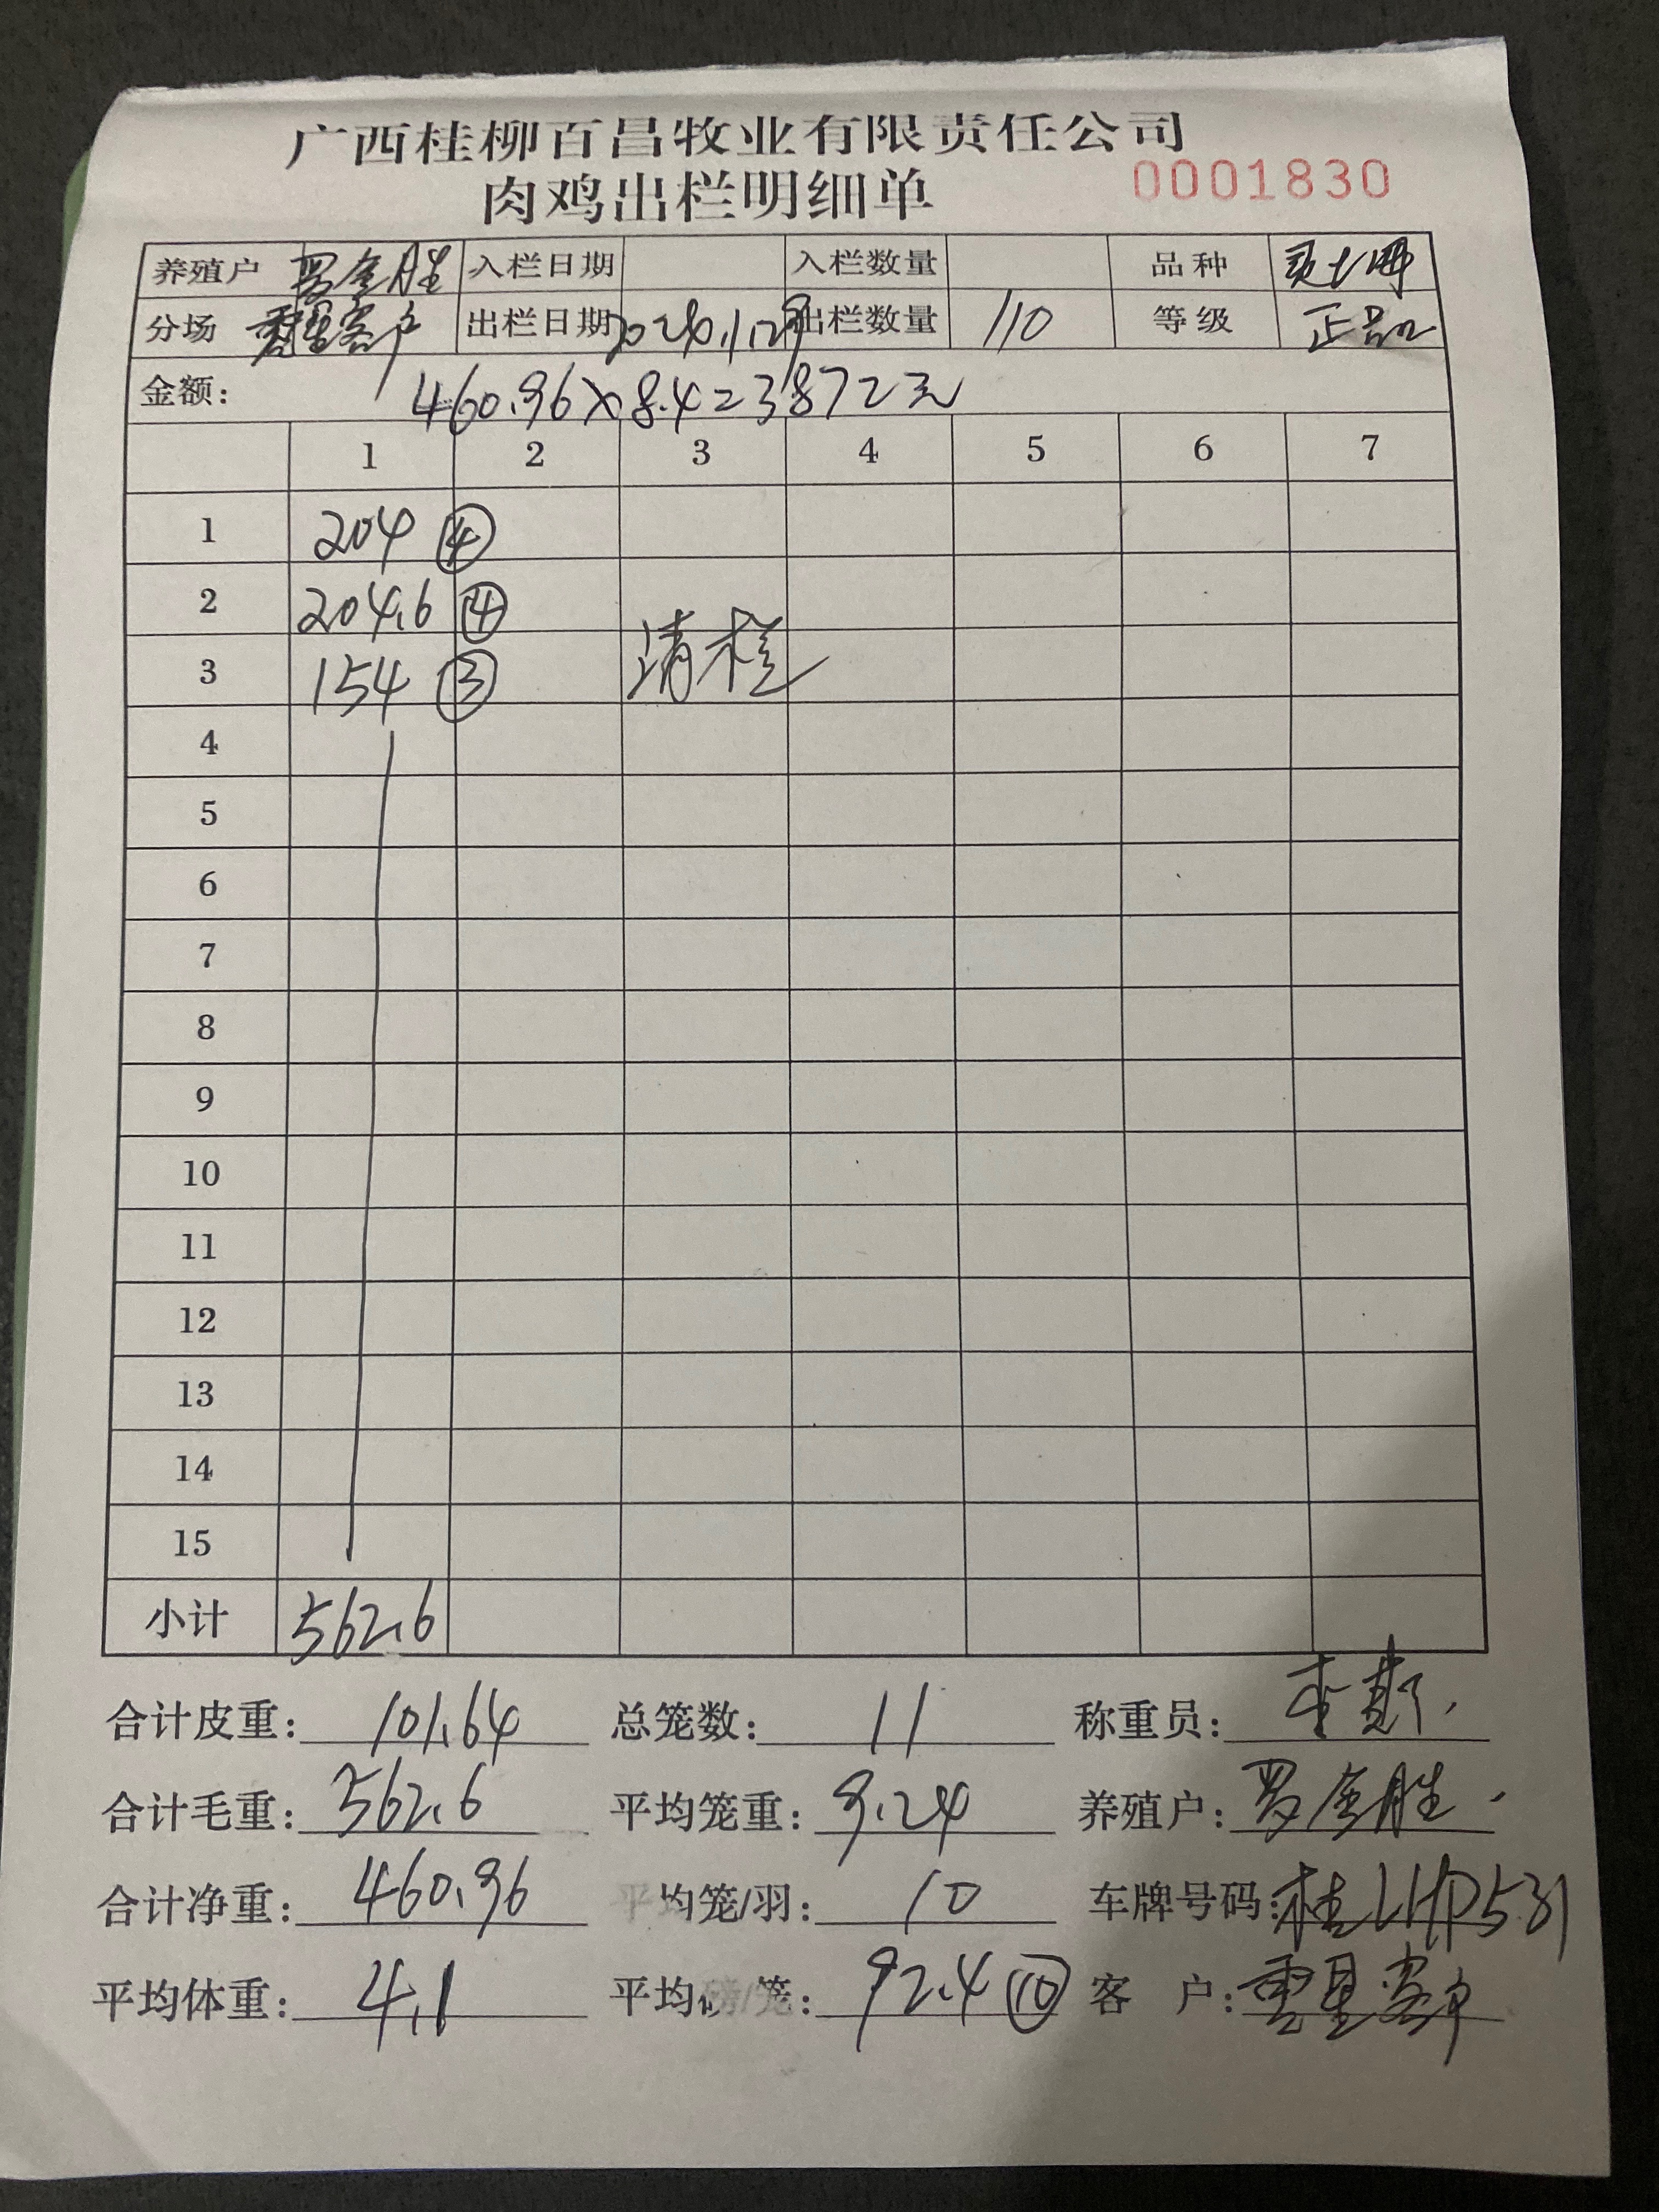 广西桂柳百昌牧业有限责任公司
肉鸡出栏明细单 0001830
养殖户 罗金胜 入栏日期 入栏数量 品种
分场 客户 出栏日期 出栏数量 110 等级 正品
金额: 460.96×8.4=3872元
1 2 3 4 5 6 7
1 204 ④
2 204.6 ④
3 154 ③ 清栏
4
5
6
7
8
9
10
11
12
13
14
15
小计 562.6
合计皮重: 101.64 总笼数: 11 称重员:
合计毛重: 562.6 平均笼重: 9.24 养殖户: 罗金胜
合计净重: 460.96 平均笼/羽: 10 车牌号码: 桂LHP531
平均体重: 4.1 平均磅/笼: 92.4 ⑩ 客户: 重星客户